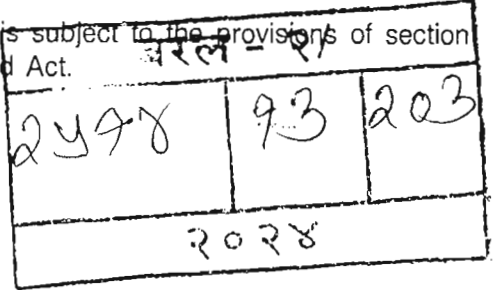 is subject to the provisions of section
d Act.
बरल - २/
२५१४ १३ २०३
२०२४